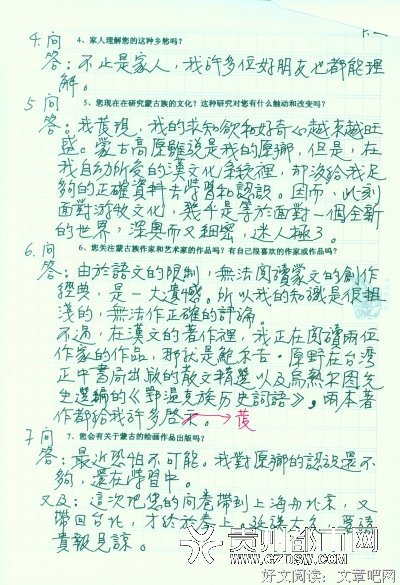 4.问 4、家人理解您的这种乡愁吗?
答：不止是家人，我許多位好朋友也都能理
解。
5 问 5、您现在在研究蒙古族的文化？这种研究对您有什么触动和改变吗？
答：我發現，我的求知欲和好奇心越來越旺
盛。蒙古高原雖說是我的原鄉，但是，在
我自幼所受的漢文化系統裡，却沒給我足
夠的正確資料去學習和認識。因而，此刻
面對游牧文化，幾乎是等於面對一個全新
的世界，深奧而又細密，迷人極了。
6.问 6、您关注蒙古族作家和艺术家的作品吗？有自己很喜欢的作家或作品吗？
答：由於語文的限制，無法閱讀蒙文的創作
經典，是一大遺憾。所以我的知識是很粗
淺的，無法作正確的評論。
不過，在漢文的著作裡，我正在閱讀兩位
作家的作品，那就是鮑尔吉·原野在台灣
正中書局出版的散文精選以及烏熱尔图先
生選編的《鄂温克族历史詞語》，兩本著
作都給我許多啓示。
發
7 问 7、您会有关于蒙古的绘画作品出版吗？
答：最近恐怕不可能。我對原鄉的認識還不
夠，還在學習中。
又及：這次把您的问卷帶到上海和北京，又
帶回台北，才終於
貴報見諒。
贵州都市网
www.GZDSW.COM
好文阅读：文章吧网